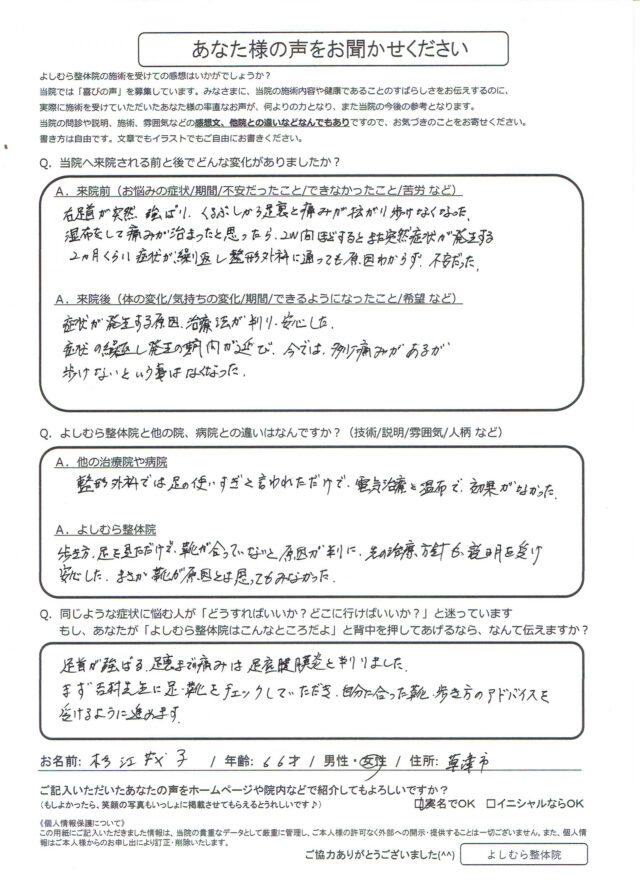 あなた様の声をお聞かせください
よしむら整体院の施術を受けての感想はいかがでしょうか?
当院では「喜びの声」を募集しています。みなさまに、当院の施術内容や健康であることのすばらしさをお伝えするのに、
実際に施術を受けていただいたあなた様の率直なお声が、何よりの力となり、また当院の今後の参考となります。
当院の問診や説明、施術、雰囲気などの感想文、他院との違いなどなんでもありですので、お気づきのことをお寄せください。
書き方は自由です。文章でもイラストでもご自由にお書きください。
Q. 当院へ来院される前と後でどんな変化がありましたか?
A. 来院前(お悩みの症状/期間/不安だったこと/できなかったこと/苦労 など)
右足首が突然、強ばり、くるぶしから足裏と痛みが拡がり歩けなくなった。
湿布をして痛みが治まったと思ったら、2W間ほどするとまた突然症状が発生する
2ヵ月くらい症状が繰り返し整形外科に通っても原因わからず、不安だった。
A. 来院後(体の変化/気持ちの変化/期間/できるようになったこと/希望 など)
症状が発生する原因、治療法が判り、安心した。
症状の繰返し発生の期間が延び、今では、多少痛みがあるが
歩けないという事はなくなった。
Q. よしむら整体院と他の院、病院との違いはなんですか?(技術/説明/雰囲気/人柄 など)
A. 他の治療院や病院
整形外科では足の使いすぎと言われただけで、電気治療と湿布で、効果がなかった。
A. よしむら整体院
歩き方、足を見ただけで、靴が合っていないと原因が判り、その治療、方針も説明を受け
安心した。まさか靴が原因とは思ってもみなかった。
Q. 同じような症状に悩む人が「どうすればいいか?どこに行けばいいか?」と迷っています
もし、あなたが「よしむら整体院はこんなところだよ」と背中を押してあげるなら、なんて伝えますか?
足首が強ばる、足裏まで痛みは足底腱膜炎と判りました。
まず吉村先生に足・靴をチェックしていただき、自分に合った靴、歩き方のアドバイスを
受けるように進めます。
お名前: 杉江 子 / 年齢: 66才 / 男性・女性 / 住所: 草津市
ご記入いただいたあなたの声をホームページや院内などで紹介してもよろしいですか?
(もしよかったら、笑顔の写真もいっしょに掲載させてもらえるとうれしいです♪) □実名でOK □イニシャルならOK
《個人情報保護について》
この用紙にご記入いただきました情報は、当院の貴重なデータとして厳重に管理し、ご本人様の許可なく外部への開示・提供することは一切ございません。また、個人情
報はご本人様からのお申し出により訂正・削除いたします。
ご協力ありがとうございました(^^) よしむら整体院